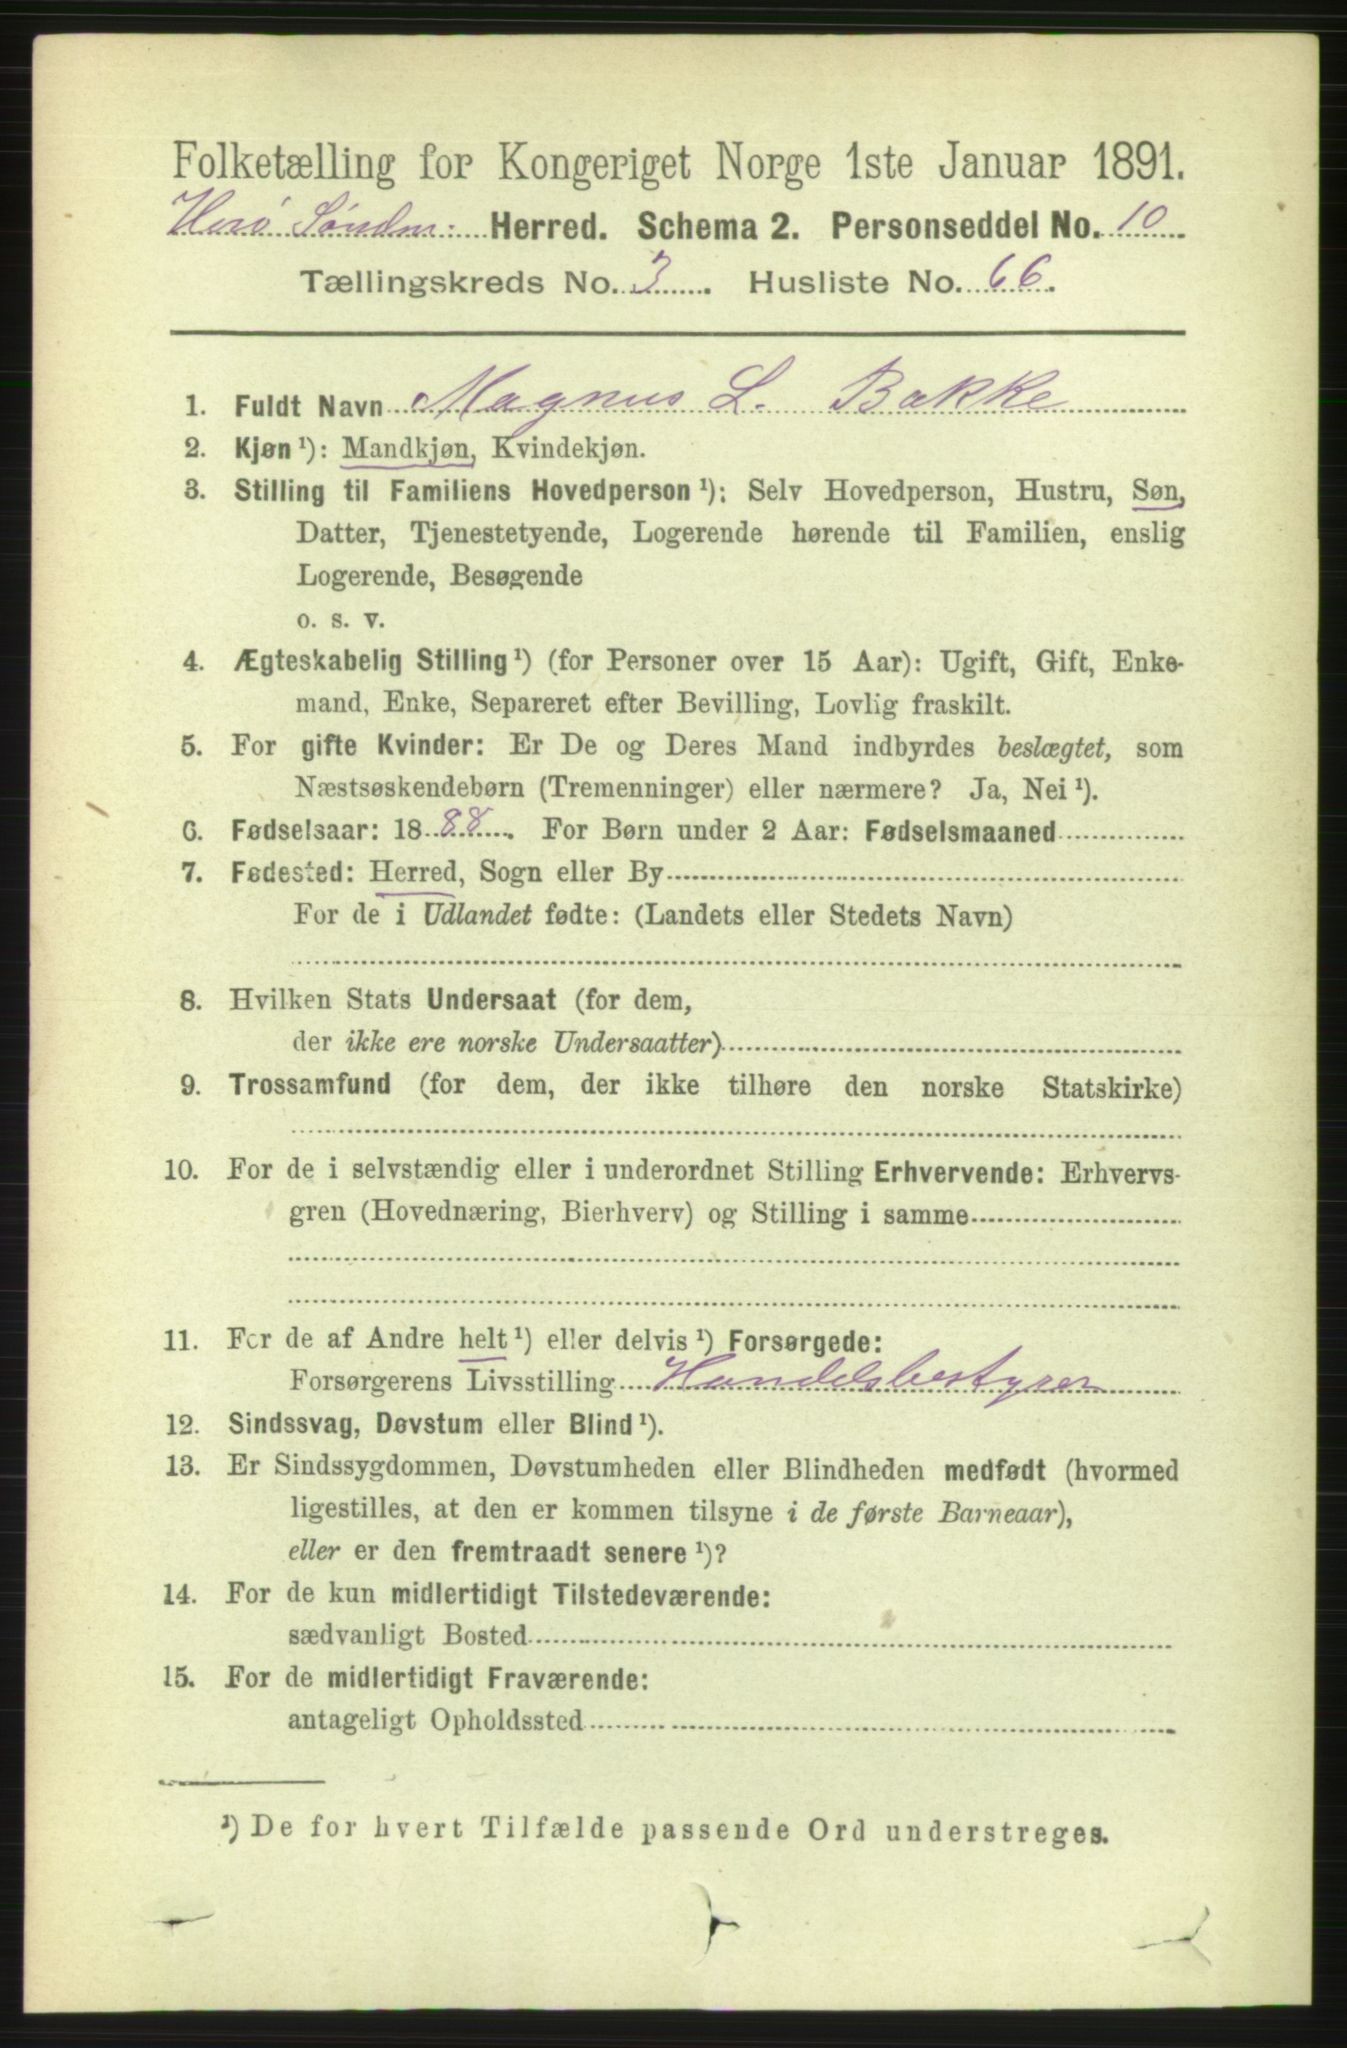 Folketælling for Kongeriget Norge 1ste Januar 1891.
Herø Søndm: Herred. Schema 2. Personseddel No. 10
Tællingskreds No. 3. Husliste No. 66.
1. Fuldt Navn Magnus L. Bakke
2. Kjøn ¹): Mandkjøn, Kvindekjøn.
3. Stilling til Familiens Hovedperson ¹): Selv Hovedperson, Hustru, Søn,
Datter, Tjenestetyende, Logerende hørende til Familien, enslig
Logerende, Besøgende
o. s. v.
4. Ægteskabelig Stilling ¹) (for Personer over 15 Aar): Ugift, Gift, Enke-
mand, Enke, Separeret efter Bevilling, Lovlig fraskilt.
5. For gifte Kvinder: Er De og Deres Mand indbyrdes beslægtet, som
Næstsøskendebørn (Tremenninger) eller nærmere? Ja, Nei ¹).
6. Fødselsaar: 1888. For Børn under 2 Aar: Fødselsmaaned
7. Fødested: Herred, Sogn eller By
For de i Udlandet fødte: (Landets eller Stedets Navn)
8. Hvilken Stats Undersaat (for dem,
der ikke ere norske Undersaatter)
9. Trossamfund (for dem, der ikke tilhøre den norske Statskirke)
10. For de i selvstændig eller i underordnet Stilling Erhvervende: Erhvervs-
gren (Hovednæring, Bierhverv) og Stilling i samme
11. For de af Andre helt ¹) eller delvis ¹) Forsørgede:
Forsørgerens Livsstilling Handelsbestyrer
12. Sindssvag, Døvstum eller Blind ¹).
13. Er Sindssygdommen, Døvstumheden eller Blindheden medfødt (hvormed
ligestilles, at den er kommen tilsyne i de første Barneaar),
eller er den fremtraadt senere ¹)?
14. For de kun midlertidigt Tilstedeværende:
sædvanligt Bosted
15. For de midlertidigt Fraværende:
antageligt Opholdssted
¹) De for hvert Tilfælde passende Ord understreges.